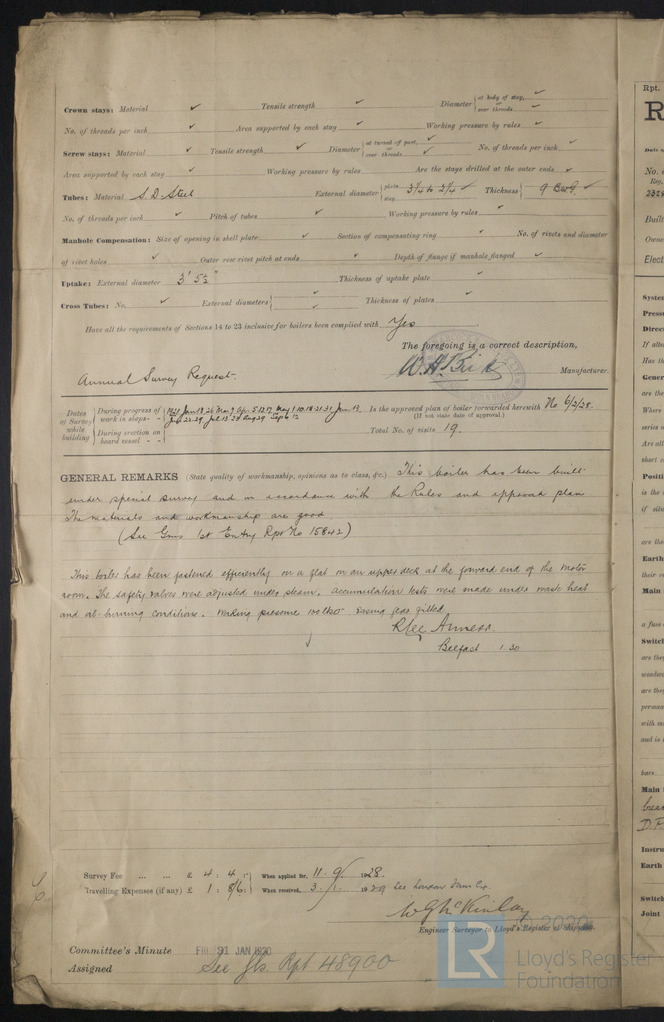 Crown stays: Material ✓ Tensile strength ✓ Diameter { at body of stay, ✓ or over threads ✓
No. of threads per inch ✓ Area supported by each stay ✓ Working pressure by rules ✓
Screw stays: Material ✓ Tensile strength ✓ Diameter { at turned off part, ✓ or over threads ✓ No. of threads per inch ✓
Area supported by each stay ✓ Working pressure by rules Are the stays drilled at the outer ends ✓
Tubes: Material S.D. Steel External diameter { plain stay 3¼ to 2¼ ✓ Thickness { 9 BWG. ✓
No. of threads per inch ✓ Pitch of tubes ✓ Working pressure by rules ✓
Manhole Compensation: Size of opening in shell plate ✓ Section of compensating ring ✓ No. of rivets and diameter
of rivet holes ✓ Outer row rivet pitch at ends ✓ Depth of flange if manhole flanged ✓
Uptake: External diameter 3' 5½" Thickness of uptake plate ✓
Cross Tubes: No. ✓ External diameters { ✓ Thickness of plates ✓
Have all the requirements of Sections 14 to 23 inclusive for boilers been complied with Yes
The foregoing is a correct description,
Manufacturer.
Annual Survey Request.
Dates of Survey while building
During progress of work in shops - - 1928 Jan 19. 26 Mar 7 Apr. 5. 12. 17 May 1. 10. 18. 21. 31 Jun 13
Is the approved plan of boiler forwarded herewith No 6/2/28.
(If not state date of approval.)
During erection on board vessel - -
Total No. of visits 19.
GENERAL REMARKS (State quality of workmanship, opinions as to class, &c.) This boiler has been built
under special survey and in accordance with the Rules and approved plan
The materials and workmanship are good.
(See Gms 1st Entry Rpt No 15842)
This boiler has been fastened efficiently on a flat on an upper deck at the forward end of the motor
room. The safety valves were adjusted under steam. Accumulation tests were made under waste heat
and oil-burning conditions. Working pressure
R Lee Amness.
Belfast 1.30
Survey Fee ... ... £ 4 : 4 : When applied for, 11. 9. 1928.
Travelling Expenses (if any) £ 1 : 8/6 : When received, 3. 1929
W G McKinlay
Engineer Surveyor to Lloyd's Register of Shipping.
Committee's Minute FRI. 31 JAN 1930
Assigned See Jls. Rpt 48900
© 2020
LR
Lloyd's Register
Foundation
Rpt.
R
No. o
Reg.
Built
Owne
Elect
System
Press
Direc
If alte
Has th
Gener
are the
Where
series o
Are all
short c
Positi
is the
if situ
are the
Earth
their s
Main
a fuse
Switc
are the
woodw
are the
perman
with su
and is
bars
Main
D.P.
Instru
Earth
Switch
Joint